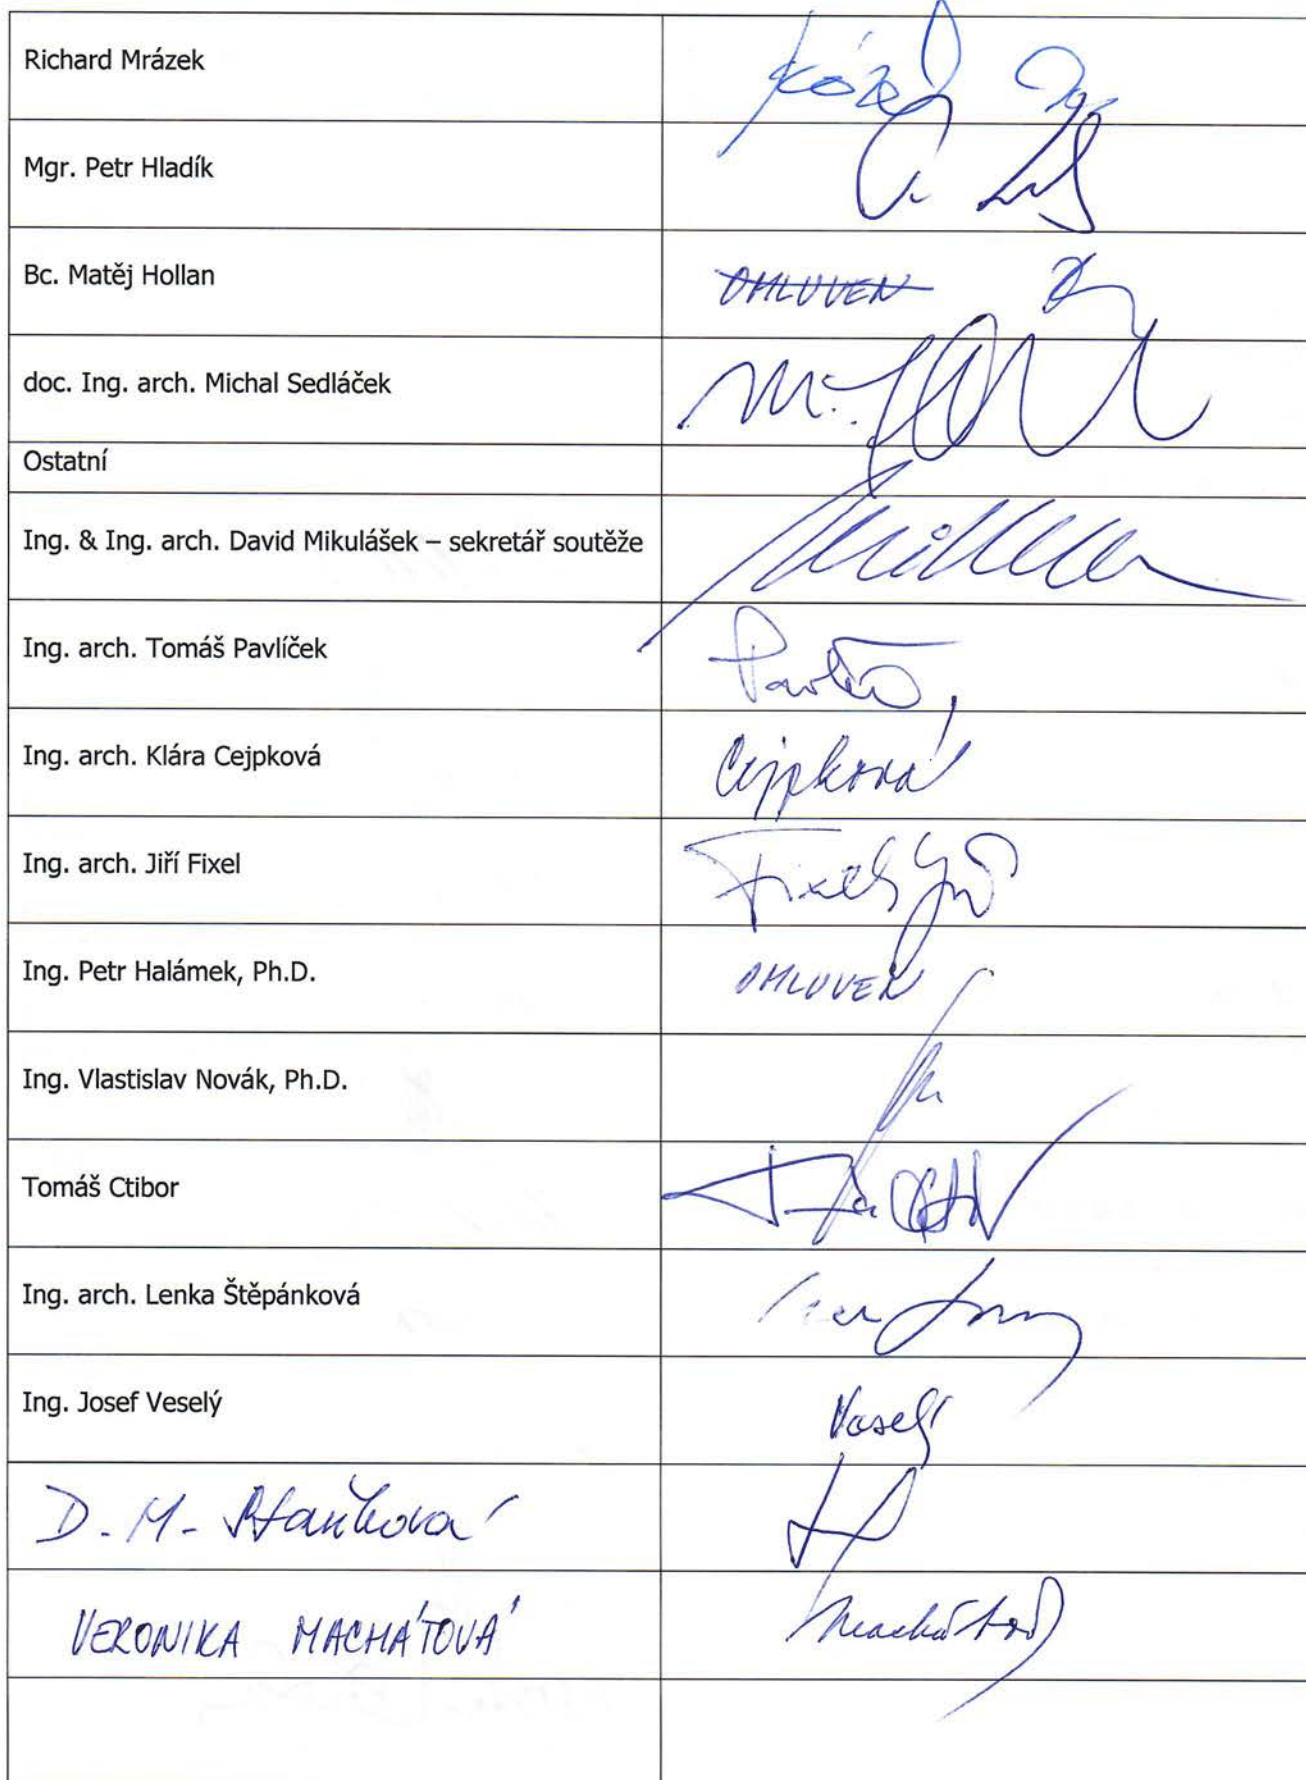 Richard Mrázek
Mgr. Petr Hladík
Bc. Matěj Hollan OMLUVEN
doc. Ing. arch. Michal Sedláček
Ostatní
Ing. & Ing. arch. David Mikulášek – sekretář soutěže
Ing. arch. Tomáš Pavlíček
Ing. arch. Klára Cejpková Cejpková
Ing. arch. Jiří Fixel Fixel Jiří
Ing. Petr Halámek, Ph.D. OMLUVEN
Ing. Vlastislav Novák, Ph.D.
Tomáš Ctibor
Ing. arch. Lenka Štěpánková
Ing. Josef Veselý Veselý
D. M. Staňková
VERONIKA MACHÁTOVÁ